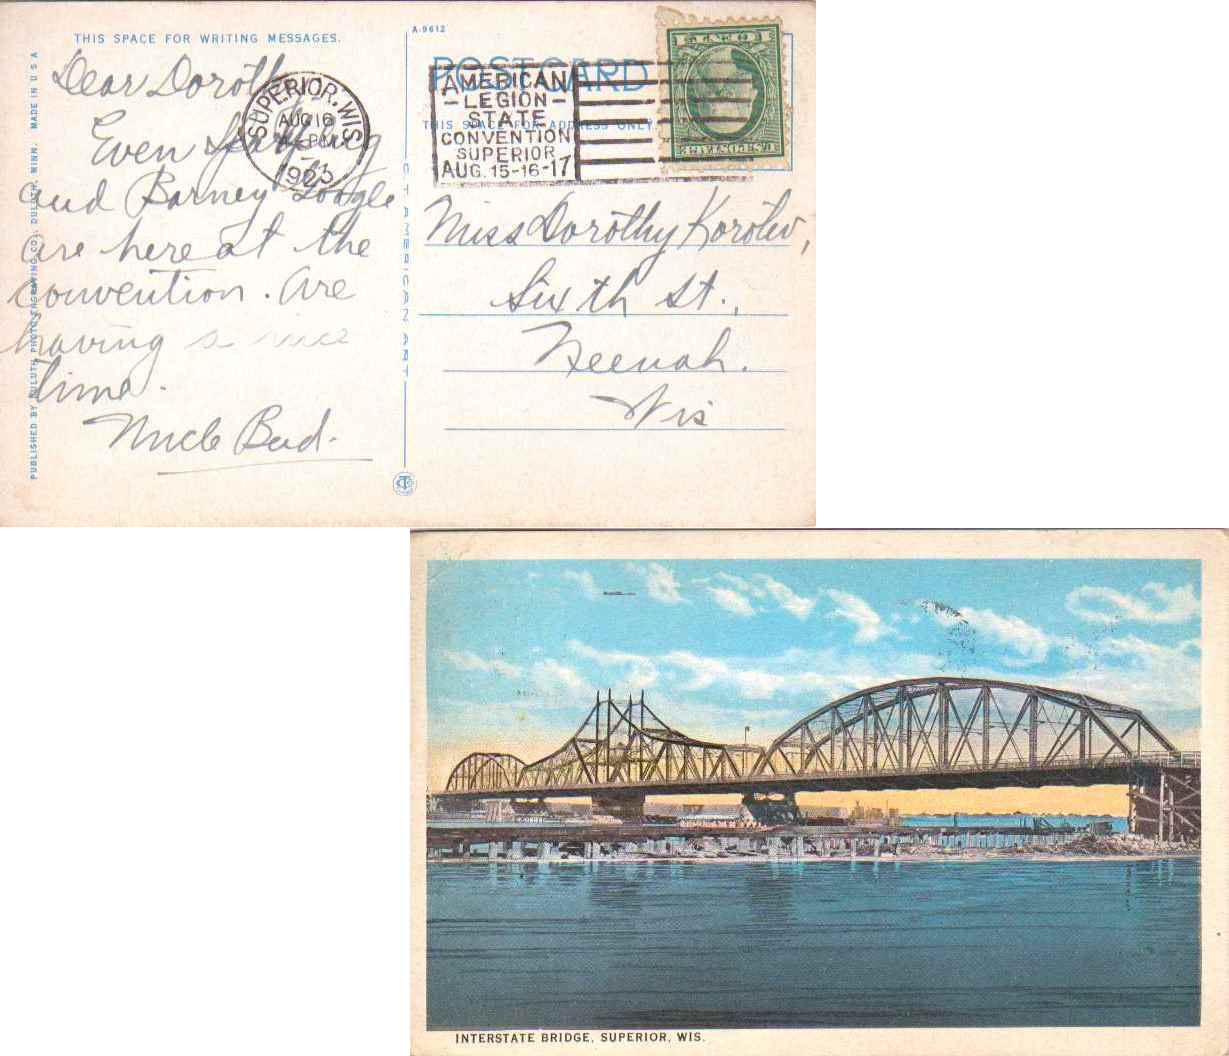 THIS SPACE FOR WRITING MESSAGES.
Dear Dorothy
Even
and Barney Google
are here at the
convention. Are
having a nice
time.
Uncle Bud.
PUBLISHED BY DULUTH PHOTO ENGRAVING CO., DULUTH, MINN. MADE IN U S A
SUPERIOR, WIS.
AUG 16
PM
1923
A-9612
POST CARD
THIS SPACE FOR ADDRESS ONLY.
AMERICAN
-LEGION-
STATE
CONVENTION
SUPERIOR
AUG. 15-16-17
1 CENT 1
U.S. POSTAGE
Miss Dorothy Korotev,
Sixth St.,
Neenah.
Wis
INTERSTATE BRIDGE, SUPERIOR, WIS.